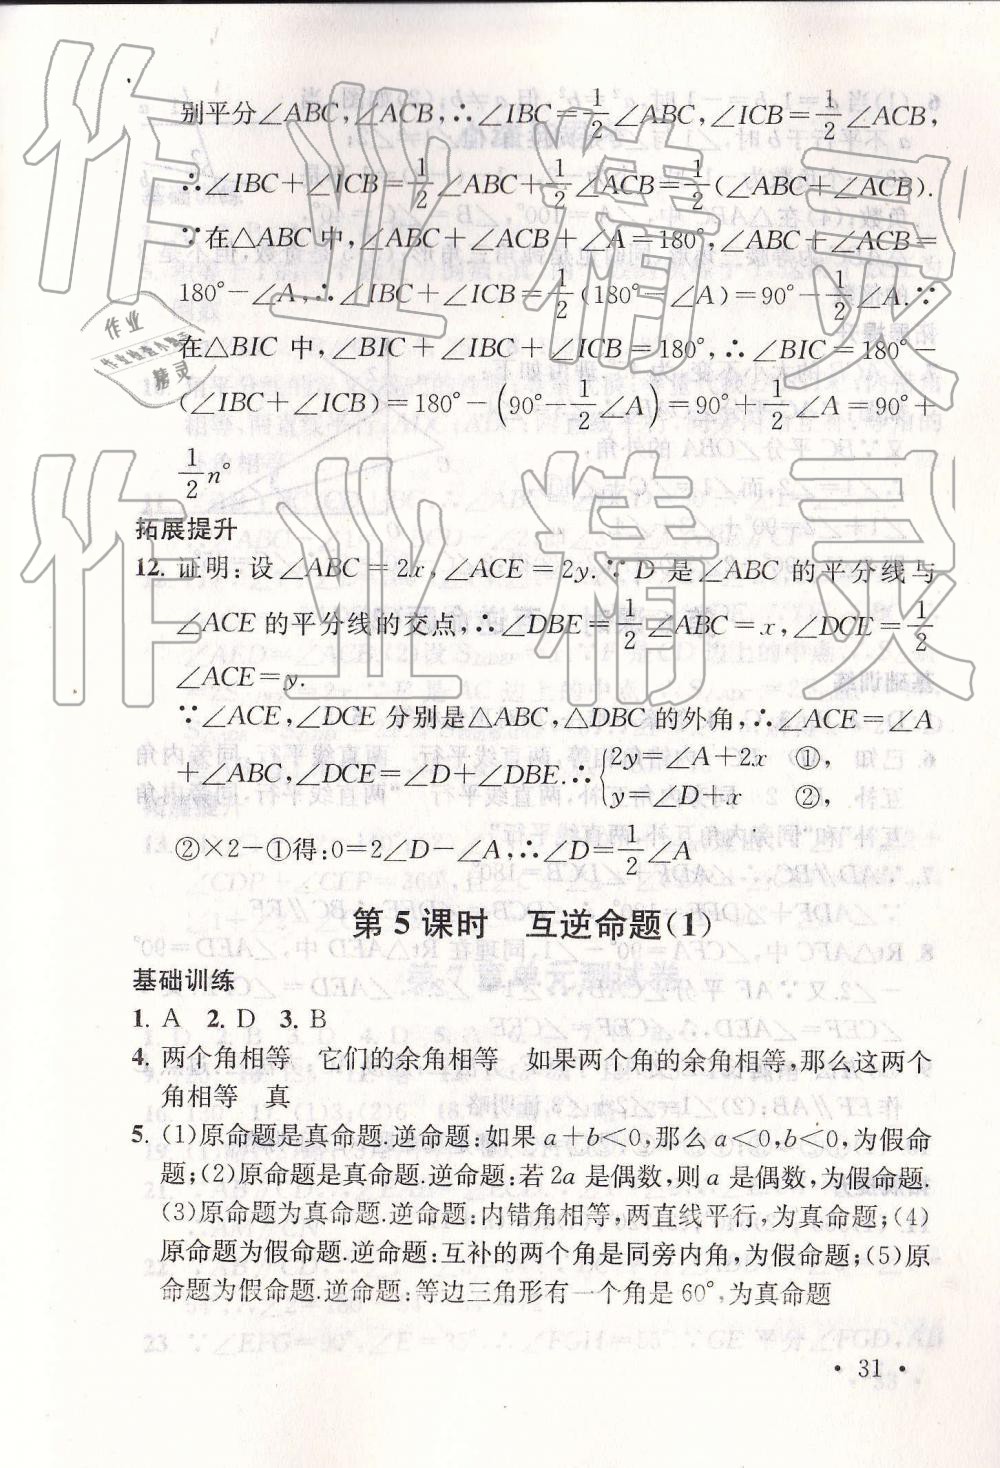 别平分∠ABC,∠ACB,∴∠IBC=1/2∠ABC,∠ICB=1/2∠ACB,
∴∠IBC+∠ICB=1/2∠ABC+1/2∠ACB=1/2(∠ABC+∠ACB).
∵在△ABC中,∠ABC+∠ACB+∠A=180°,∠ABC+∠ACB=
180°-∠A,∴∠IBC+∠ICB=1/2(180°-∠A)=90°-1/2∠A.∵
在△BIC中,∠BIC+∠IBC+∠ICB=180°,∴∠BIC=180°-
(∠IBC+∠ICB)=180°-(90°-1/2∠A)=90°+1/2∠A=90°+
1/2n°
拓展提升
12. 证明:设∠ABC=2x,∠ACE=2y.∵D是∠ABC的平分线与
∠ACE的平分线的交点,∴∠DBE=1/2∠ABC=x,∠DCE=1/2
∠ACE=y.
∵∠ACE,∠DCE分别是△ABC,△DBC的外角,∴∠ACE=∠A
+∠ABC,∠DCE=∠D+∠DBE.∴{2y=∠A+2x ①,
y=∠D+x ②,
②×2-①得:0=2∠D-∠A,∴∠D=1/2∠A
第5课时 互逆命题(1)
基础训练
1. A 2. D 3. B
4. 两个角相等 它们的余角相等 如果两个角的余角相等,那么这两个
角相等 真
5. (1)原命题是真命题.逆命题:如果a+b<0,那么a<0,b<0,为假命
题;(2)原命题是真命题.逆命题:若2a是偶数,则a是偶数,为假命题.
(3)原命题为真命题.逆命题:内错角相等,两直线平行,为真命题;(4)
原命题为假命题.逆命题:互补的两个角是同旁内角,为假命题;(5)原
命题为假命题.逆命题:等边三角形有一个角是60°,为真命题
• 31 •
作业精灵
作业精灵
作业
作业检查小助手
精灵